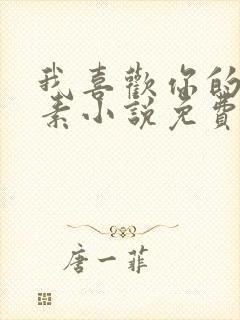 我喜歡你的
素小說免費
唐一菲